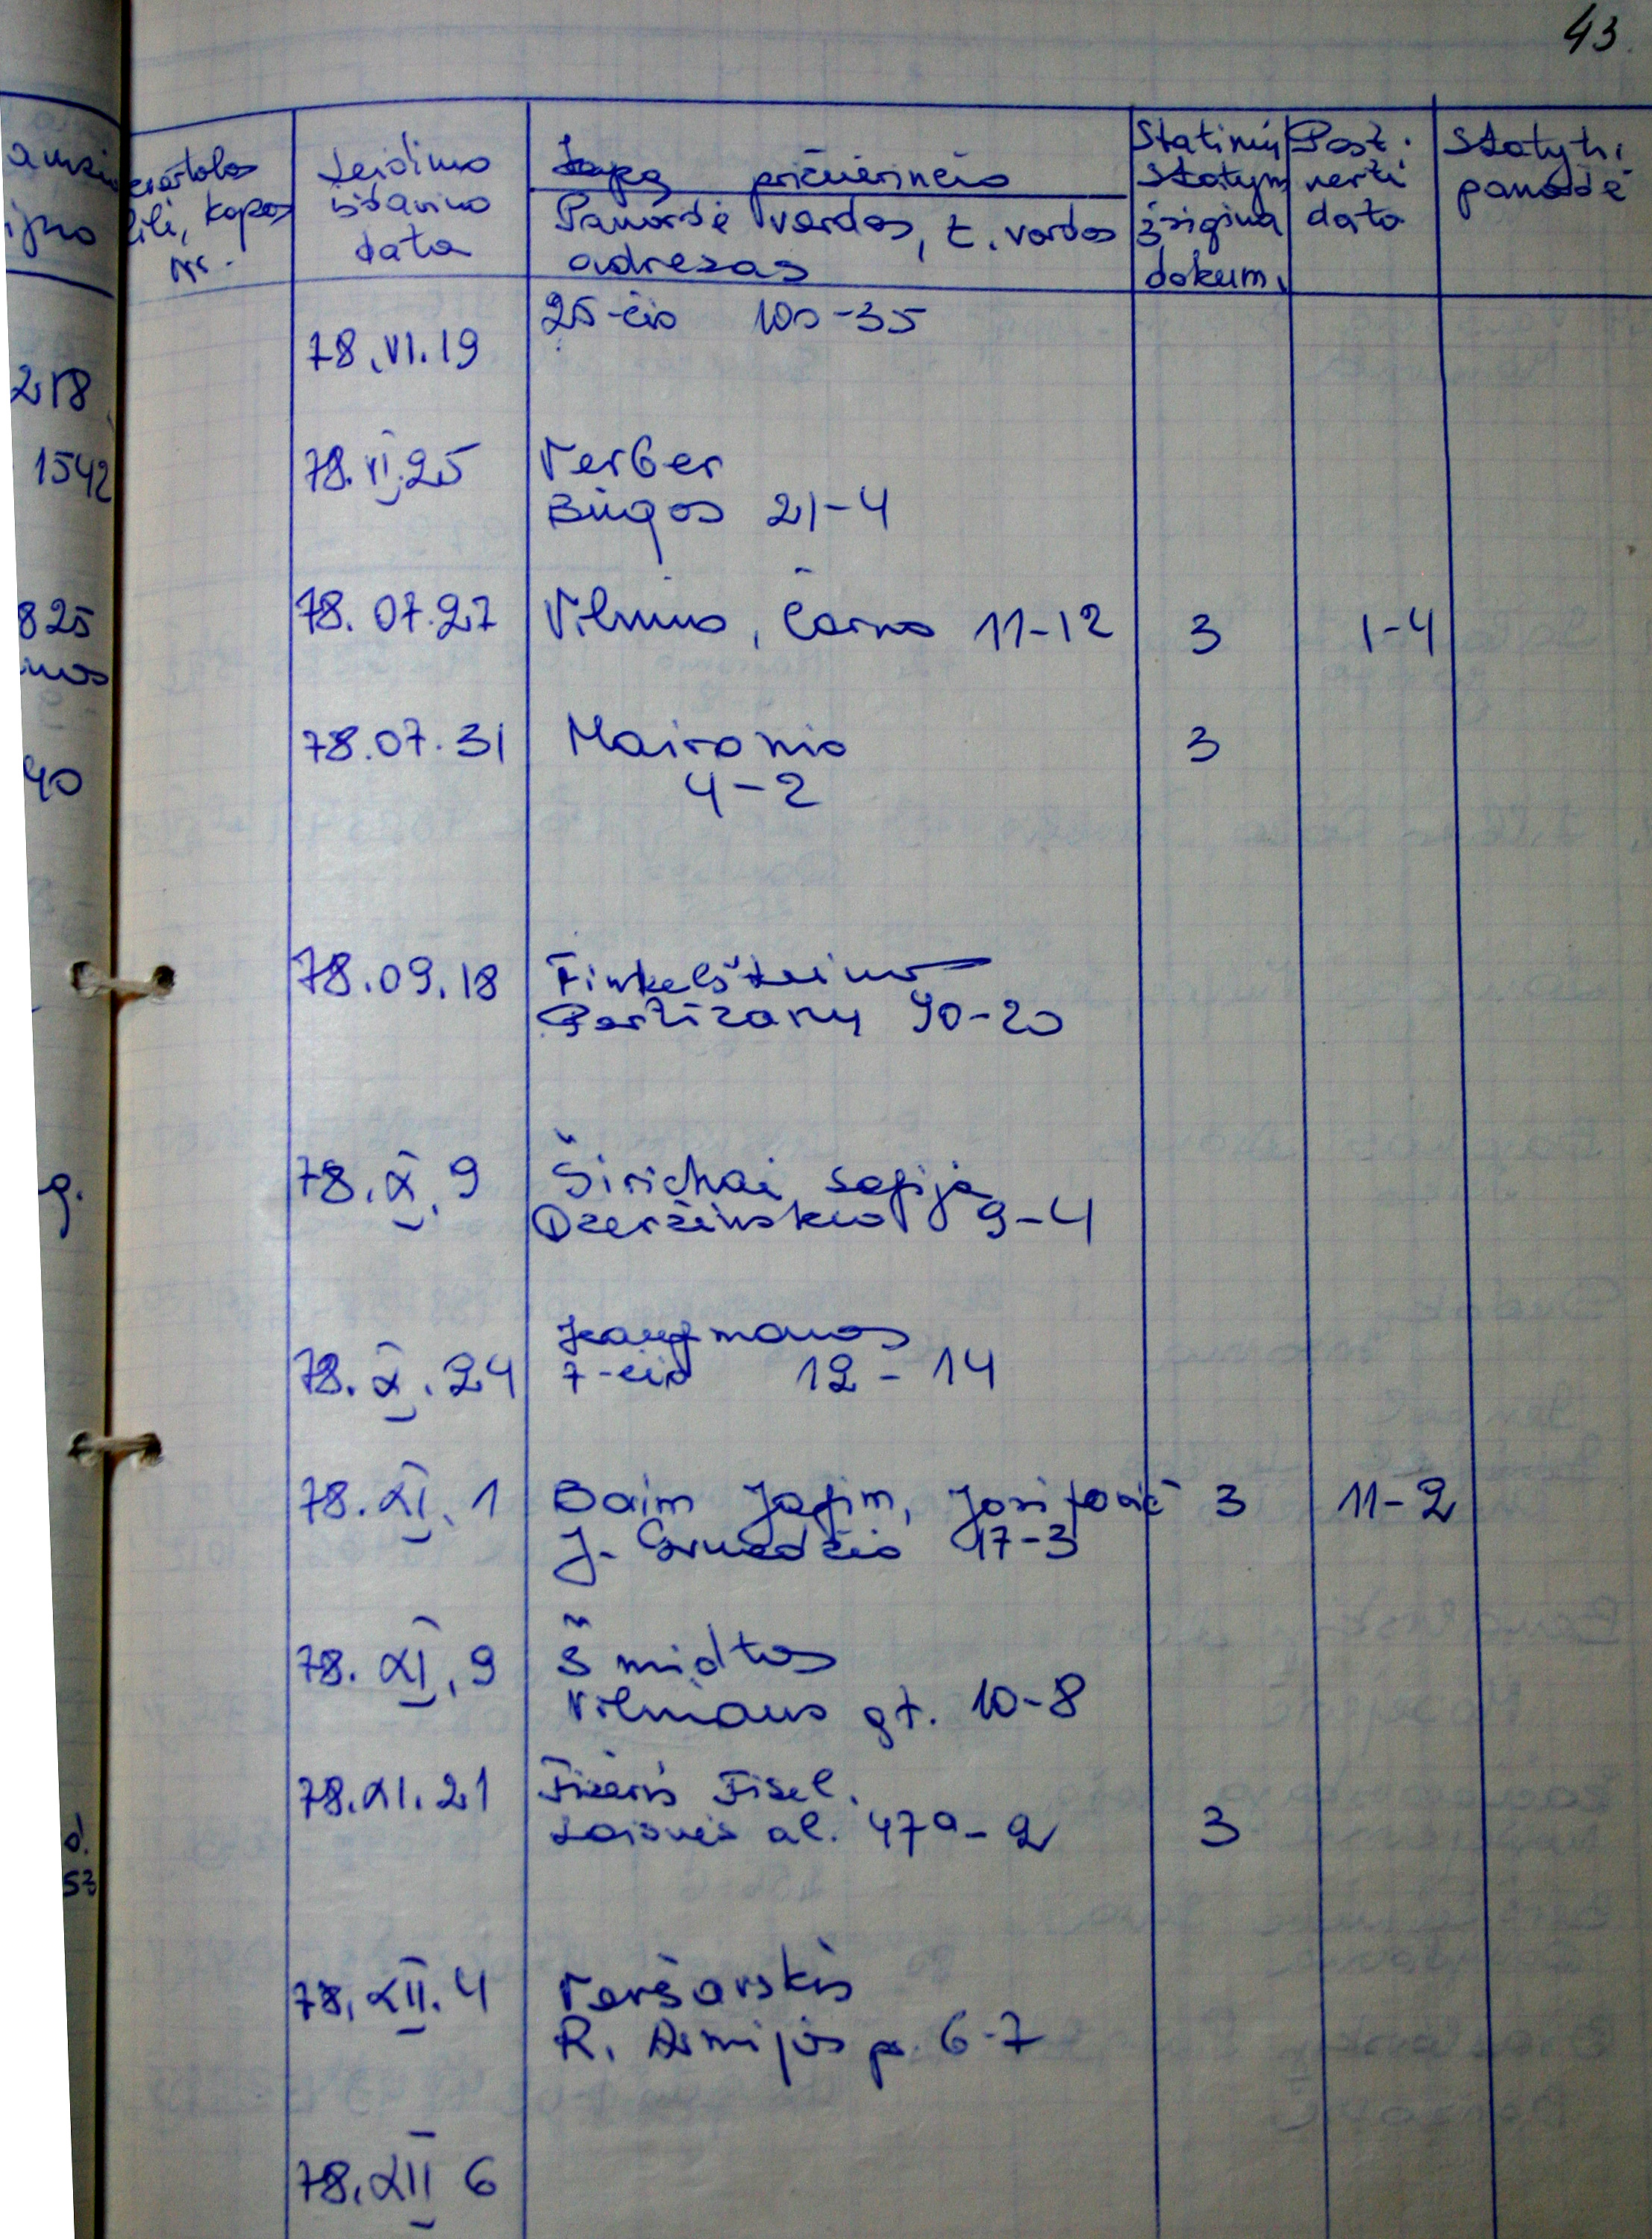 43.
Leidimo
išdavimo
data
Kapą prižiūrinčio
Pavardė vardas, t. vardas
adresas
Statinių
statym
įsigima
dokum.
Past.
nerti
data
Statyti
pavardė
kapos
Nr.
78.VI.19
25-čio 100-35
218
1542
78.VI.25
Verber
Būgos 21-4
825
78.07.27 Vilnius, Čarno 11-12 3 1-4
78.07.31 Maironio 3
4-2
40
78.09.18 Finkelšteino
Partizanų 90-20
78.X.9 Širichai Sofija
Dzeržinskio 9-4
Kaufmanas
78.X.24 7-čio 12-14
78.XI.1 Baim Jafim, Josifovič 3 11-2
J. Gruodžio 17-3
78.XI.9 Šmidtas
Vilniaus gt. 10-8
78.XI.21 Fišeris Fišel.
Laisvės al. 47a-2 3
53
78.XII.4 Veršavskis
R. Armijos pr. 6-7
78.XII 6